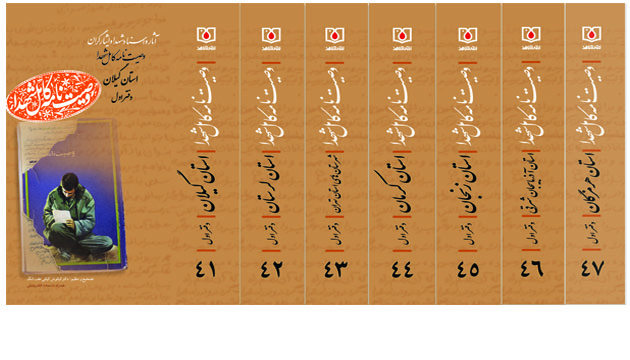 آثار و اسناد شهدا و ایثارگران
وصیت نامه کامل شهدا
استان گیلان
دفتر اول
وصیت نامه کامل شهدا
وصیت نامه کامل شهدا
استان گیلان
دفتر اول
۴۱
وصیت نامه کامل شهدا
استان لرستان
دفتر اول
۴۲
وصیت نامه کامل شهدا
شهرستان های استان تهران
دفتر اول
۴۳
وصیت نامه کامل شهدا
استان کرمان
دفتر اول
۴۴
وصیت نامه کامل شهدا
استان زنجان
دفتر اول
۴۵
وصیت نامه کامل شهدا
استان آذربایجان شرقی
دفتر اول
۴۶
وصیت نامه کامل شهدا
استان هرمزگان
دفتر اول
۴۷